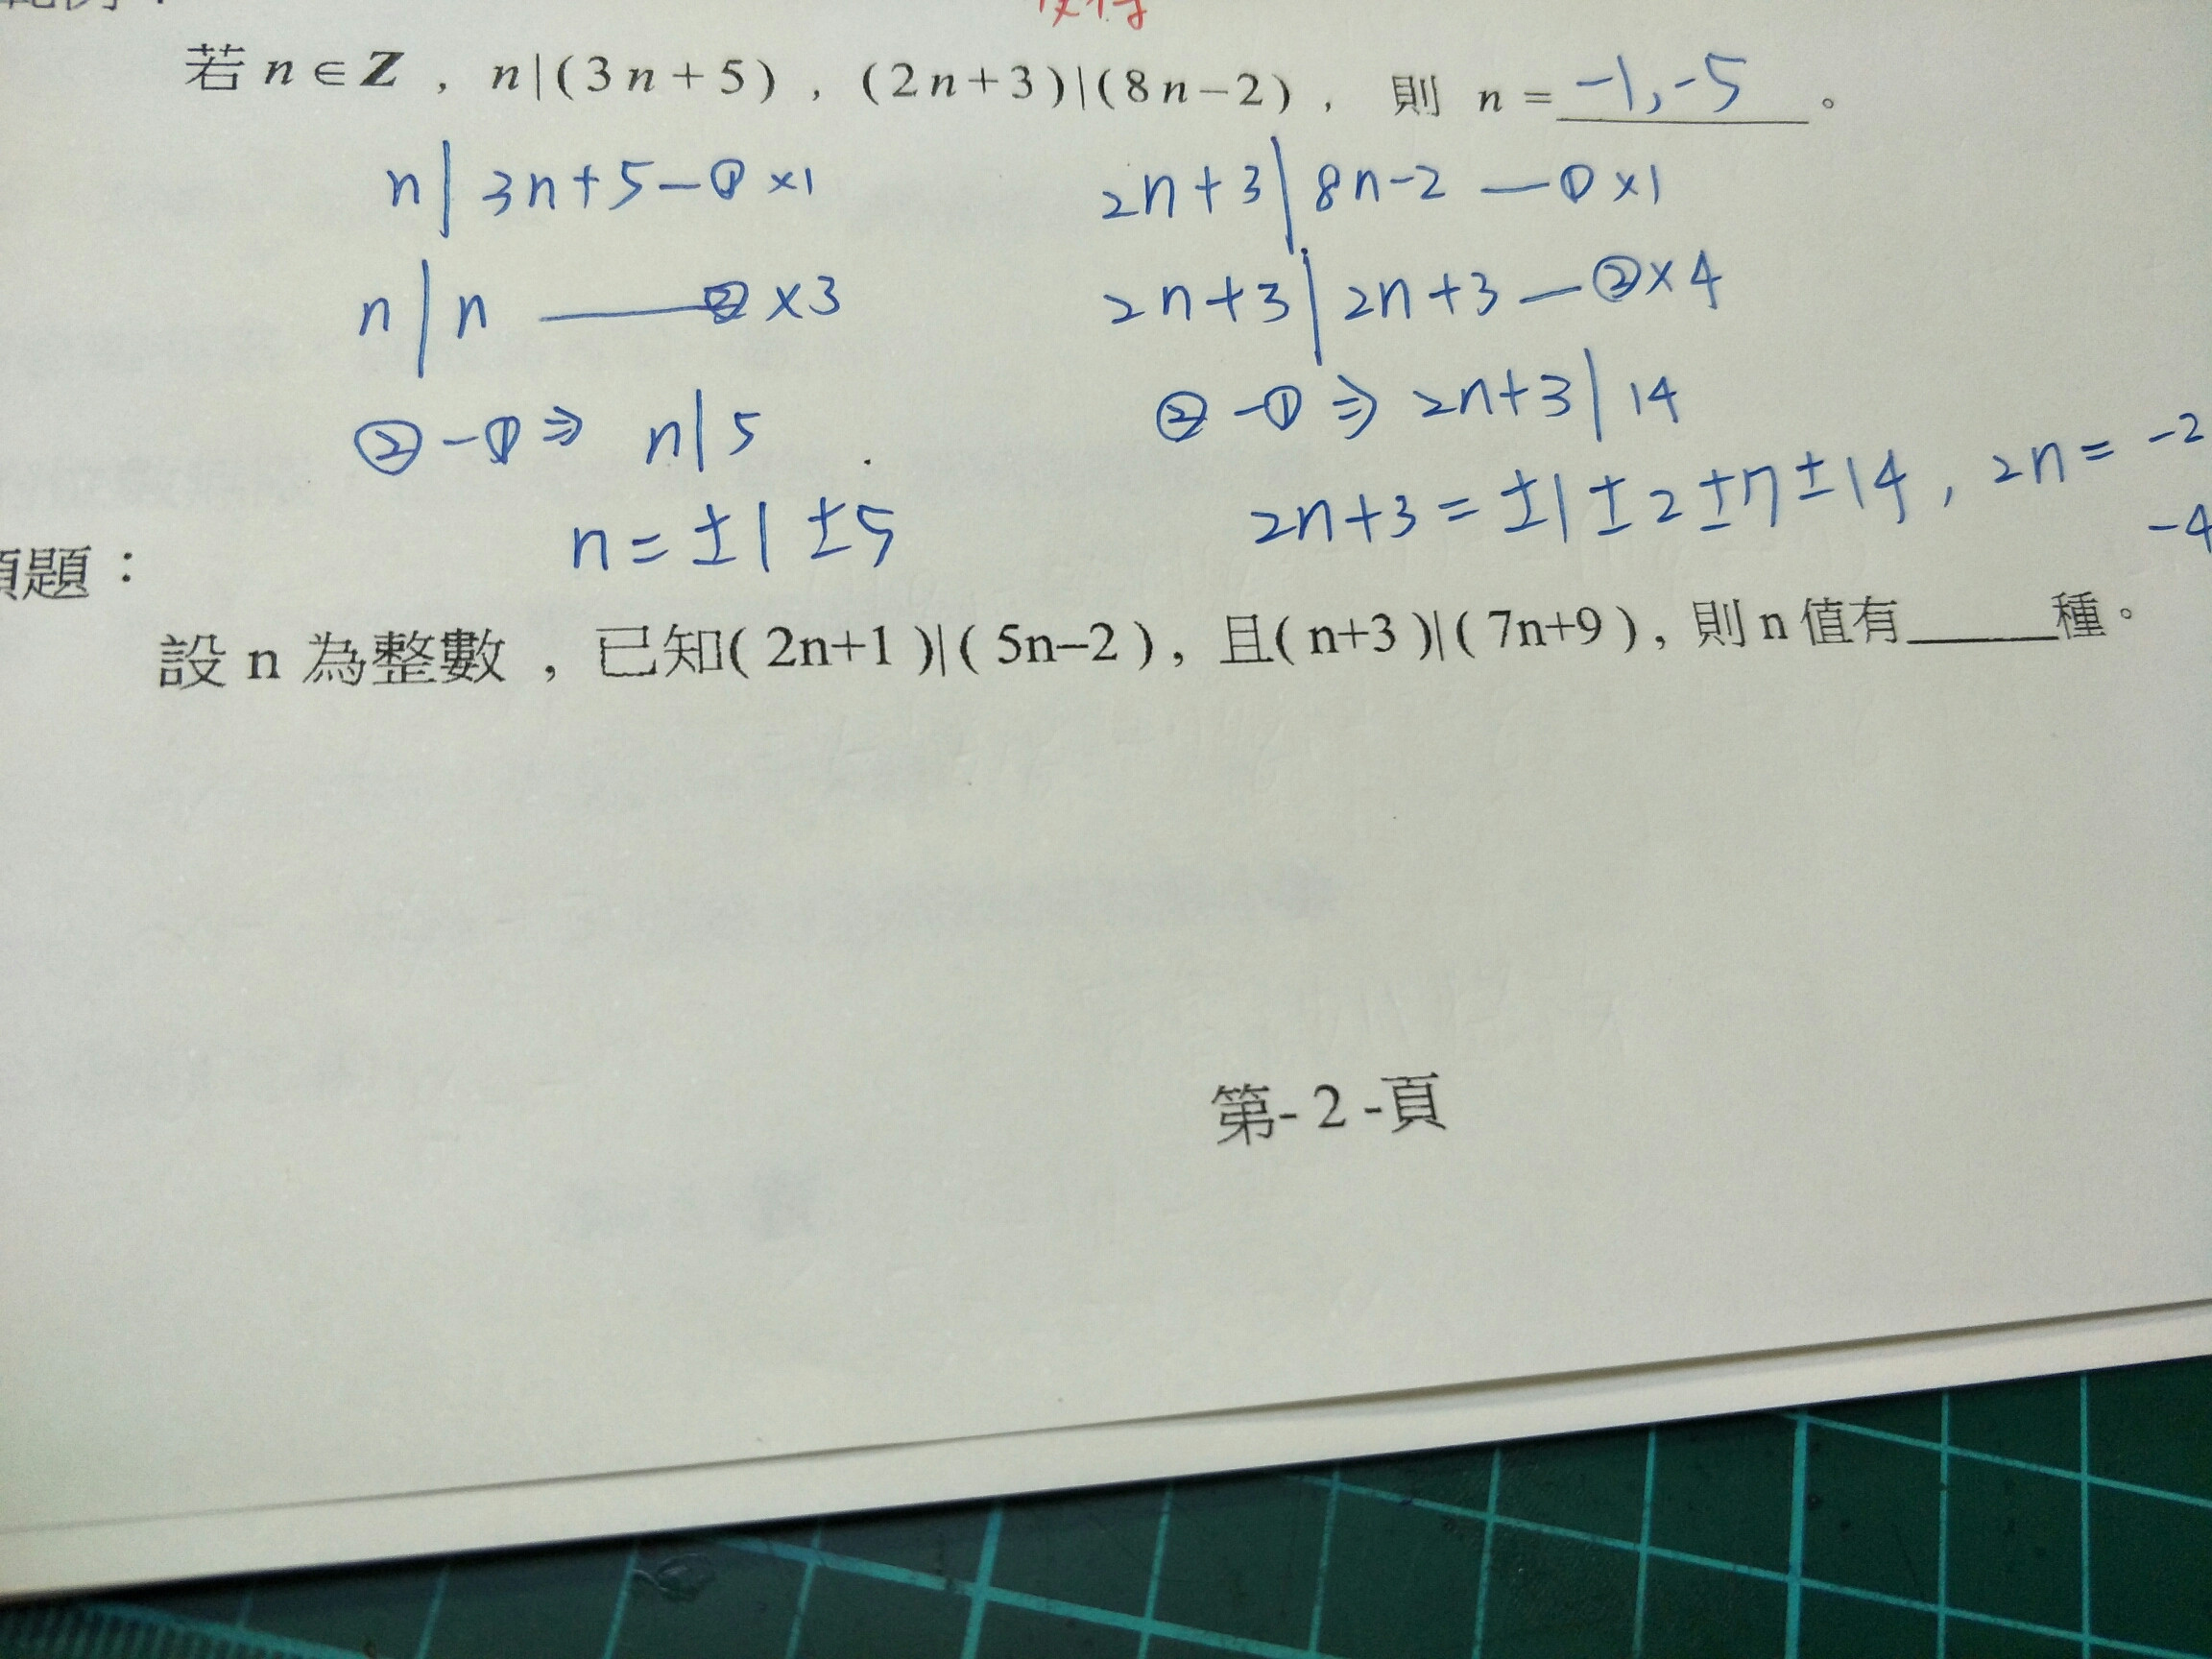 若 n∈Z , n|(3n+5) , (2n+3)|(8n-2) , 則 n = -1,-5 。
n | 3n+5 — ① ×1
n | n — ② ×3
② - ① ⇒ n | 5
n = ±1 ±5
2n+3 | 8n-2 — ① ×1
2n+3 | 2n+3 — ② ×4
② - ① ⇒ 2n+3 | 14
2n+3 = ±1 ±2 ±7 ±14 , 2n = -2
-4
題：
設 n 為整數 , 已知( 2n+1 )|( 5n–2 ) , 且( n+3 )|( 7n+9 ) , 則 n 值有______種。
第- 2 -頁